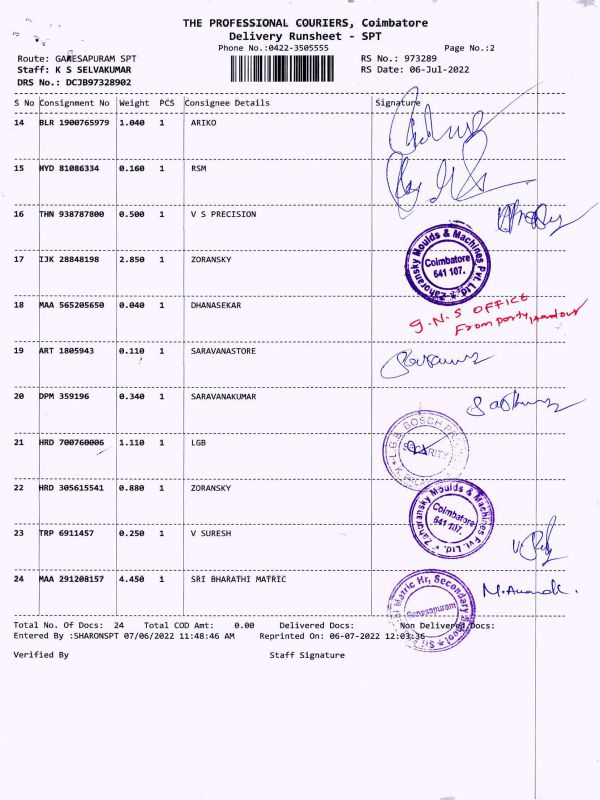 THE PROFESSIONAL COURIERS, Coimbatore
Delivery Runsheet - SPT
Phone No.:0422-3505555 Page No.:2
Route: GANESAPURAM SPT RS No.: 973289
Staff: K S SELVAKUMAR RS Date: 06-Jul-2022
DRS No.: DCJB97328902
S No Consignment No Weight PCS Consignee Details Signature
14 BLR 1900765979 1.040 1 ARIKO
15 HYD 81086334 0.160 1 RSM
16 THN 938787800 0.500 1 V S PRECISION
17 IJK 28848198 2.850 1 ZORANSKY
Zahoransky Moulds & Machines Pvt. Ltd.
Coimbatore
641 107.
18 MAA 565205650 0.040 1 DHANASEKAR
G.N.S OFFICE
From party
19 ART 1805943 0.110 1 SARAVANASTORE
20 DPM 359196 0.340 1 SARAVANAKUMAR
21 HRD 700760006 1.110 1 LGB
SECURITY
22 HRD 305615541 0.880 1 ZORANSKY
Zahoransky Moulds & Machines Pvt. Ltd.
Coimbatore
641 107.
23 TRP 6911457 0.250 1 V SURESH
24 MAA 291208157 4.450 1 SRI BHARATHI MATRIC
Matric Hr, Secondary School
Ganesapuram
Total No. Of Docs: 24 Total COD Amt: 0.00 Delivered Docs: Non Delivered Docs:
Entered By :SHARONSPT 07/06/2022 11:48:46 AM Reprinted On: 06-07-2022 12:03:36
Verified By Staff Signature